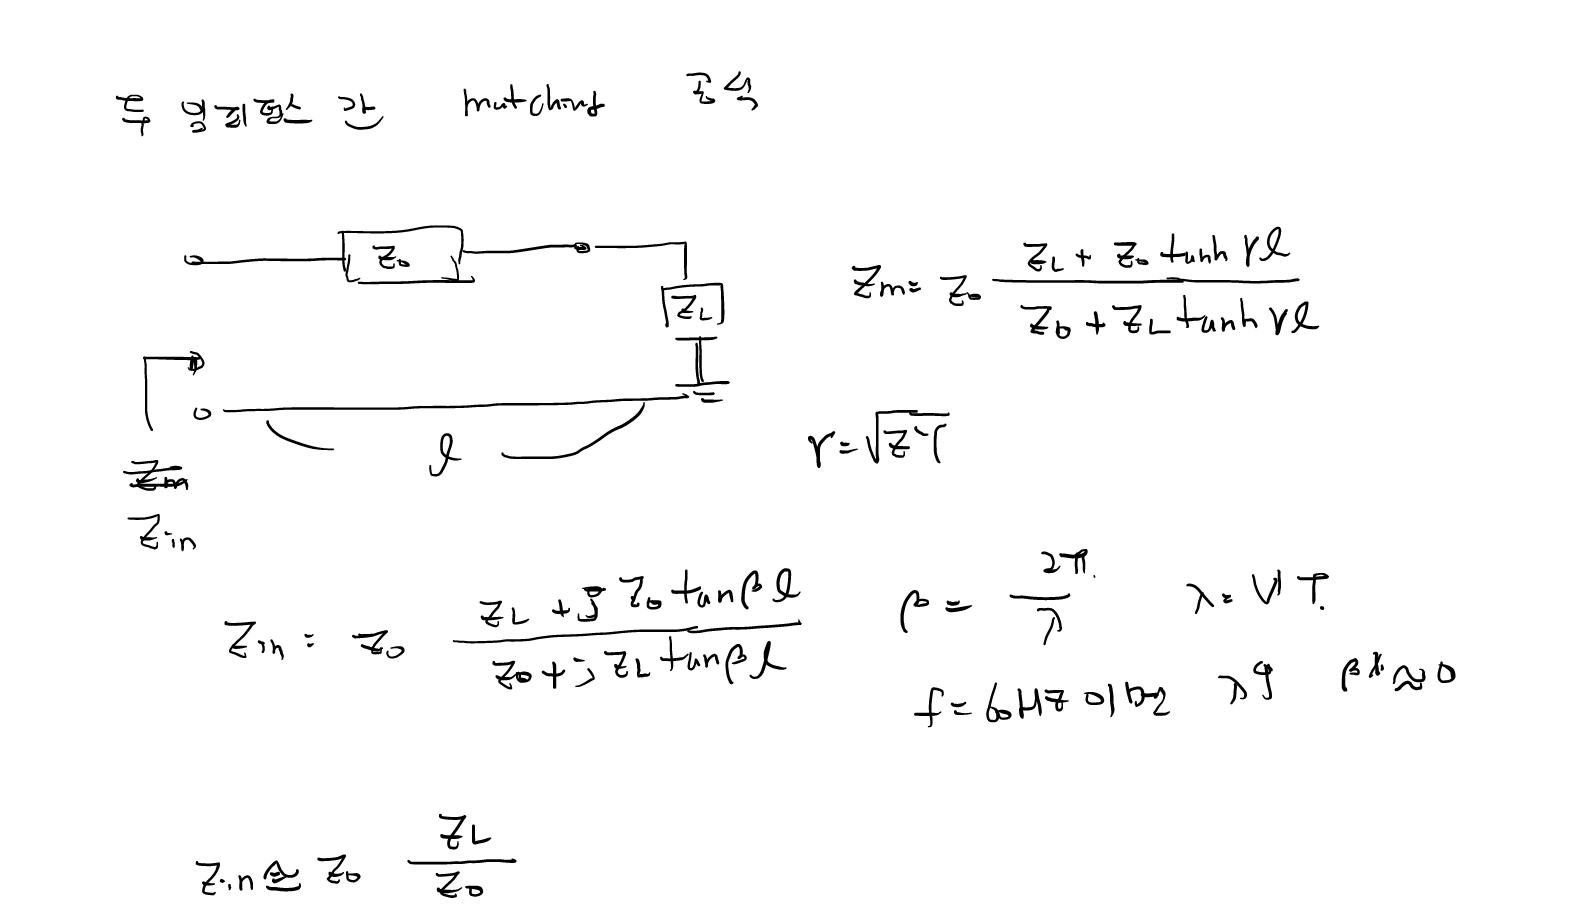 두 임피던스 간 matching 공식
Z₀
Z_L
l
Zm
Zin
Zm = Z₀ (Z_L + Z₀ tanh γl) / (Z₀ + Z_L tanh γl)
γ = √ZY
Zin = Z₀ (Z_L + j Z₀ tan β l) / (Z₀ + j Z_L tan β l)
β = 2π / λ λ = VT
f = 60HZ 이면 β ≈ 0
Zin ≃ Z₀ Z_L / Z₀